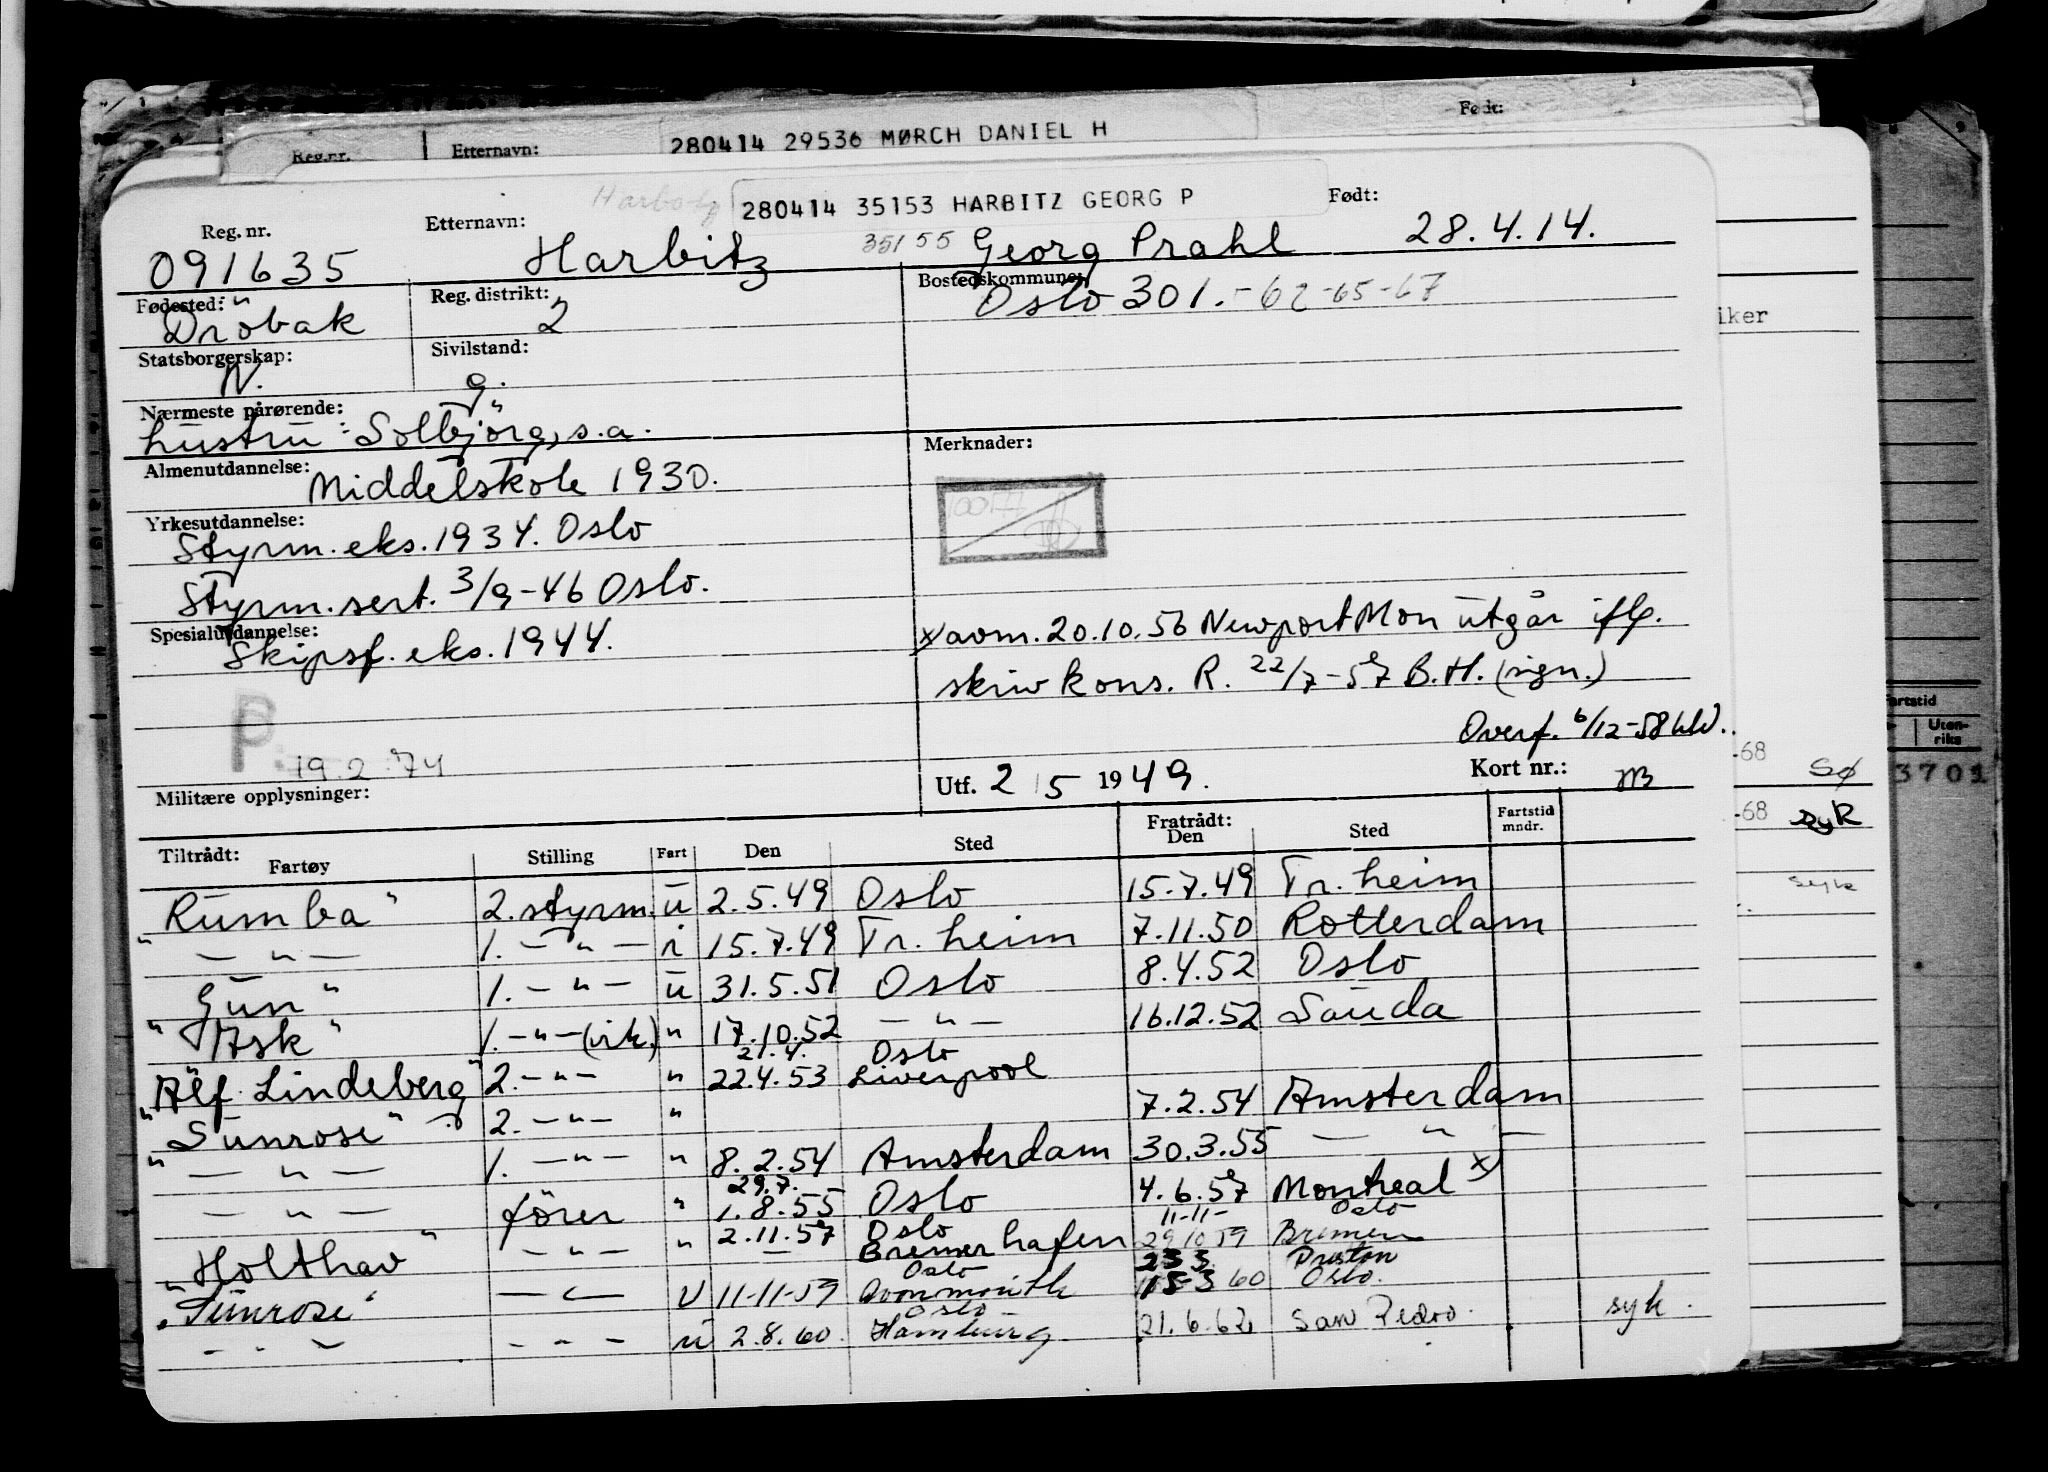 Født:
Reg.nr.
Etternavn:
280414 29536 MØRCH DANIEL H
280414 35153 HARBITZ GEORG P
Født:
Reg. nr.
Etternavn:
091635
Harbitz
35155
Georg Prahl
28.4.14.
Fødested:
Dröbak
Reg. distrikt:
2
Bostedskommune:
Oslo 301.-62-65-67
iker
Statsborgerskap:
N.
Sivilstand:
g.
Nærmeste pårørende:
hustru: Solbjörg, s.a.
Merknader:
Almenutdannelse:
Middelskole 1930.
Yrkesutdannelse:
Styrm. eks. 1934. Oslo
Styrm. sert. 3/9-46 Oslo.
Spesialutdannelse:
Skipsf. eks. 1944.
x) avm. 20.10.56 Newport Mon utgår iflg.
skriv kons. R. 22/7-57 B.H. (sign.)
Overf. 6/12-58
P.
19.2.74
Utf. 2/5 1949.
Kort nr.:
Militære opplysninger:
artstid
Uten-
riks
3701
-68 SØ
-68 syk
syk
Tiltrådt:
Fartøy Stilling Fart Den Sted Fratrådt: Den Sted Fartstid mndr.
"Rumba" 2. styrm. u 2.5.49 Oslo 15.7.49 Tr.heim
— " — 1. — " — i 15.7.49 Tr.heim 7.11.50 Rotterdam
"Gun" 1. — " — u 31.5.51 Oslo 8.4.52 Oslo
"Ask" 1. — " — (vik.) " 17.10.52 — " — 16.12.52 Sauda
21.4. Oslo
"Alf Lindeberg" 2. — " — " 22.4.53 Liverpool
"Sunrose" 2. — " — " 7.2.54 Amsterdam
— " — 1. — " — " 8.2.54 Amsterdam 30.3.55 — " —
29.7.
— " — förer " 1.8.55 Oslo 4.6.57 Montreal x)
Oslo 11-11- Oslo
"Holthav" — " — " 2.11.57 Bremerhafen 29.10.59 Bremen
Oslo 23 3 Preston
"Sunrose" — " — U 11-11-59 Avonmouth 15-3 60 Oslo.
Oslo
— " — — " — u 2.8.60. Hamburg 21.6.62 San Pedro. syk.